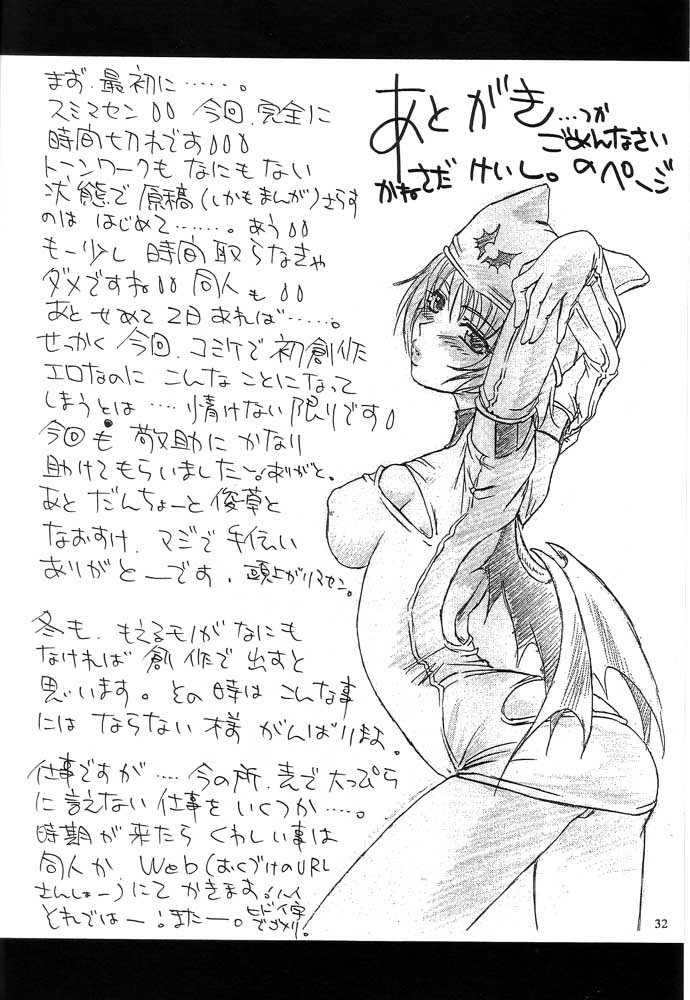 あとがき…つか
ごめんなさい
のページ
かねさだ けいし。
まず、最初に……。
スミマセン 今回、完全に
時間切れです
トーンワークもなにもない
状態で原稿(しかもまんが)さらす
のは はじめて……。あう
もー少し 時間取らなきゃ
ダメですね 同人も
あと せめて 2日あれば……。
せっかく 今回、コミケで初創作
エロなのに こんなことになって
しまうとは…. 情けない限りです
今回も 敬助にかなり
助けてもらいました〜。ありがと。
あと だんちょーと 俊草と
なおすけ、マジで手伝い
ありがとーです、頭上がりマセン。
冬も、もえるモノがなにも
なければ 創作で出すと
思います。その時は こんな事
には ならない様 がんばりまむ。
仕事ですが…. 今の所、表で大っぴら
に言えない仕事をいくつか…。
時期が来たら くわしい事は
同人か Web(おくづけのURL
さんしょー)にて かきます!ハイ
それではー!またー。ヒドイ字
でゴメソ!
32